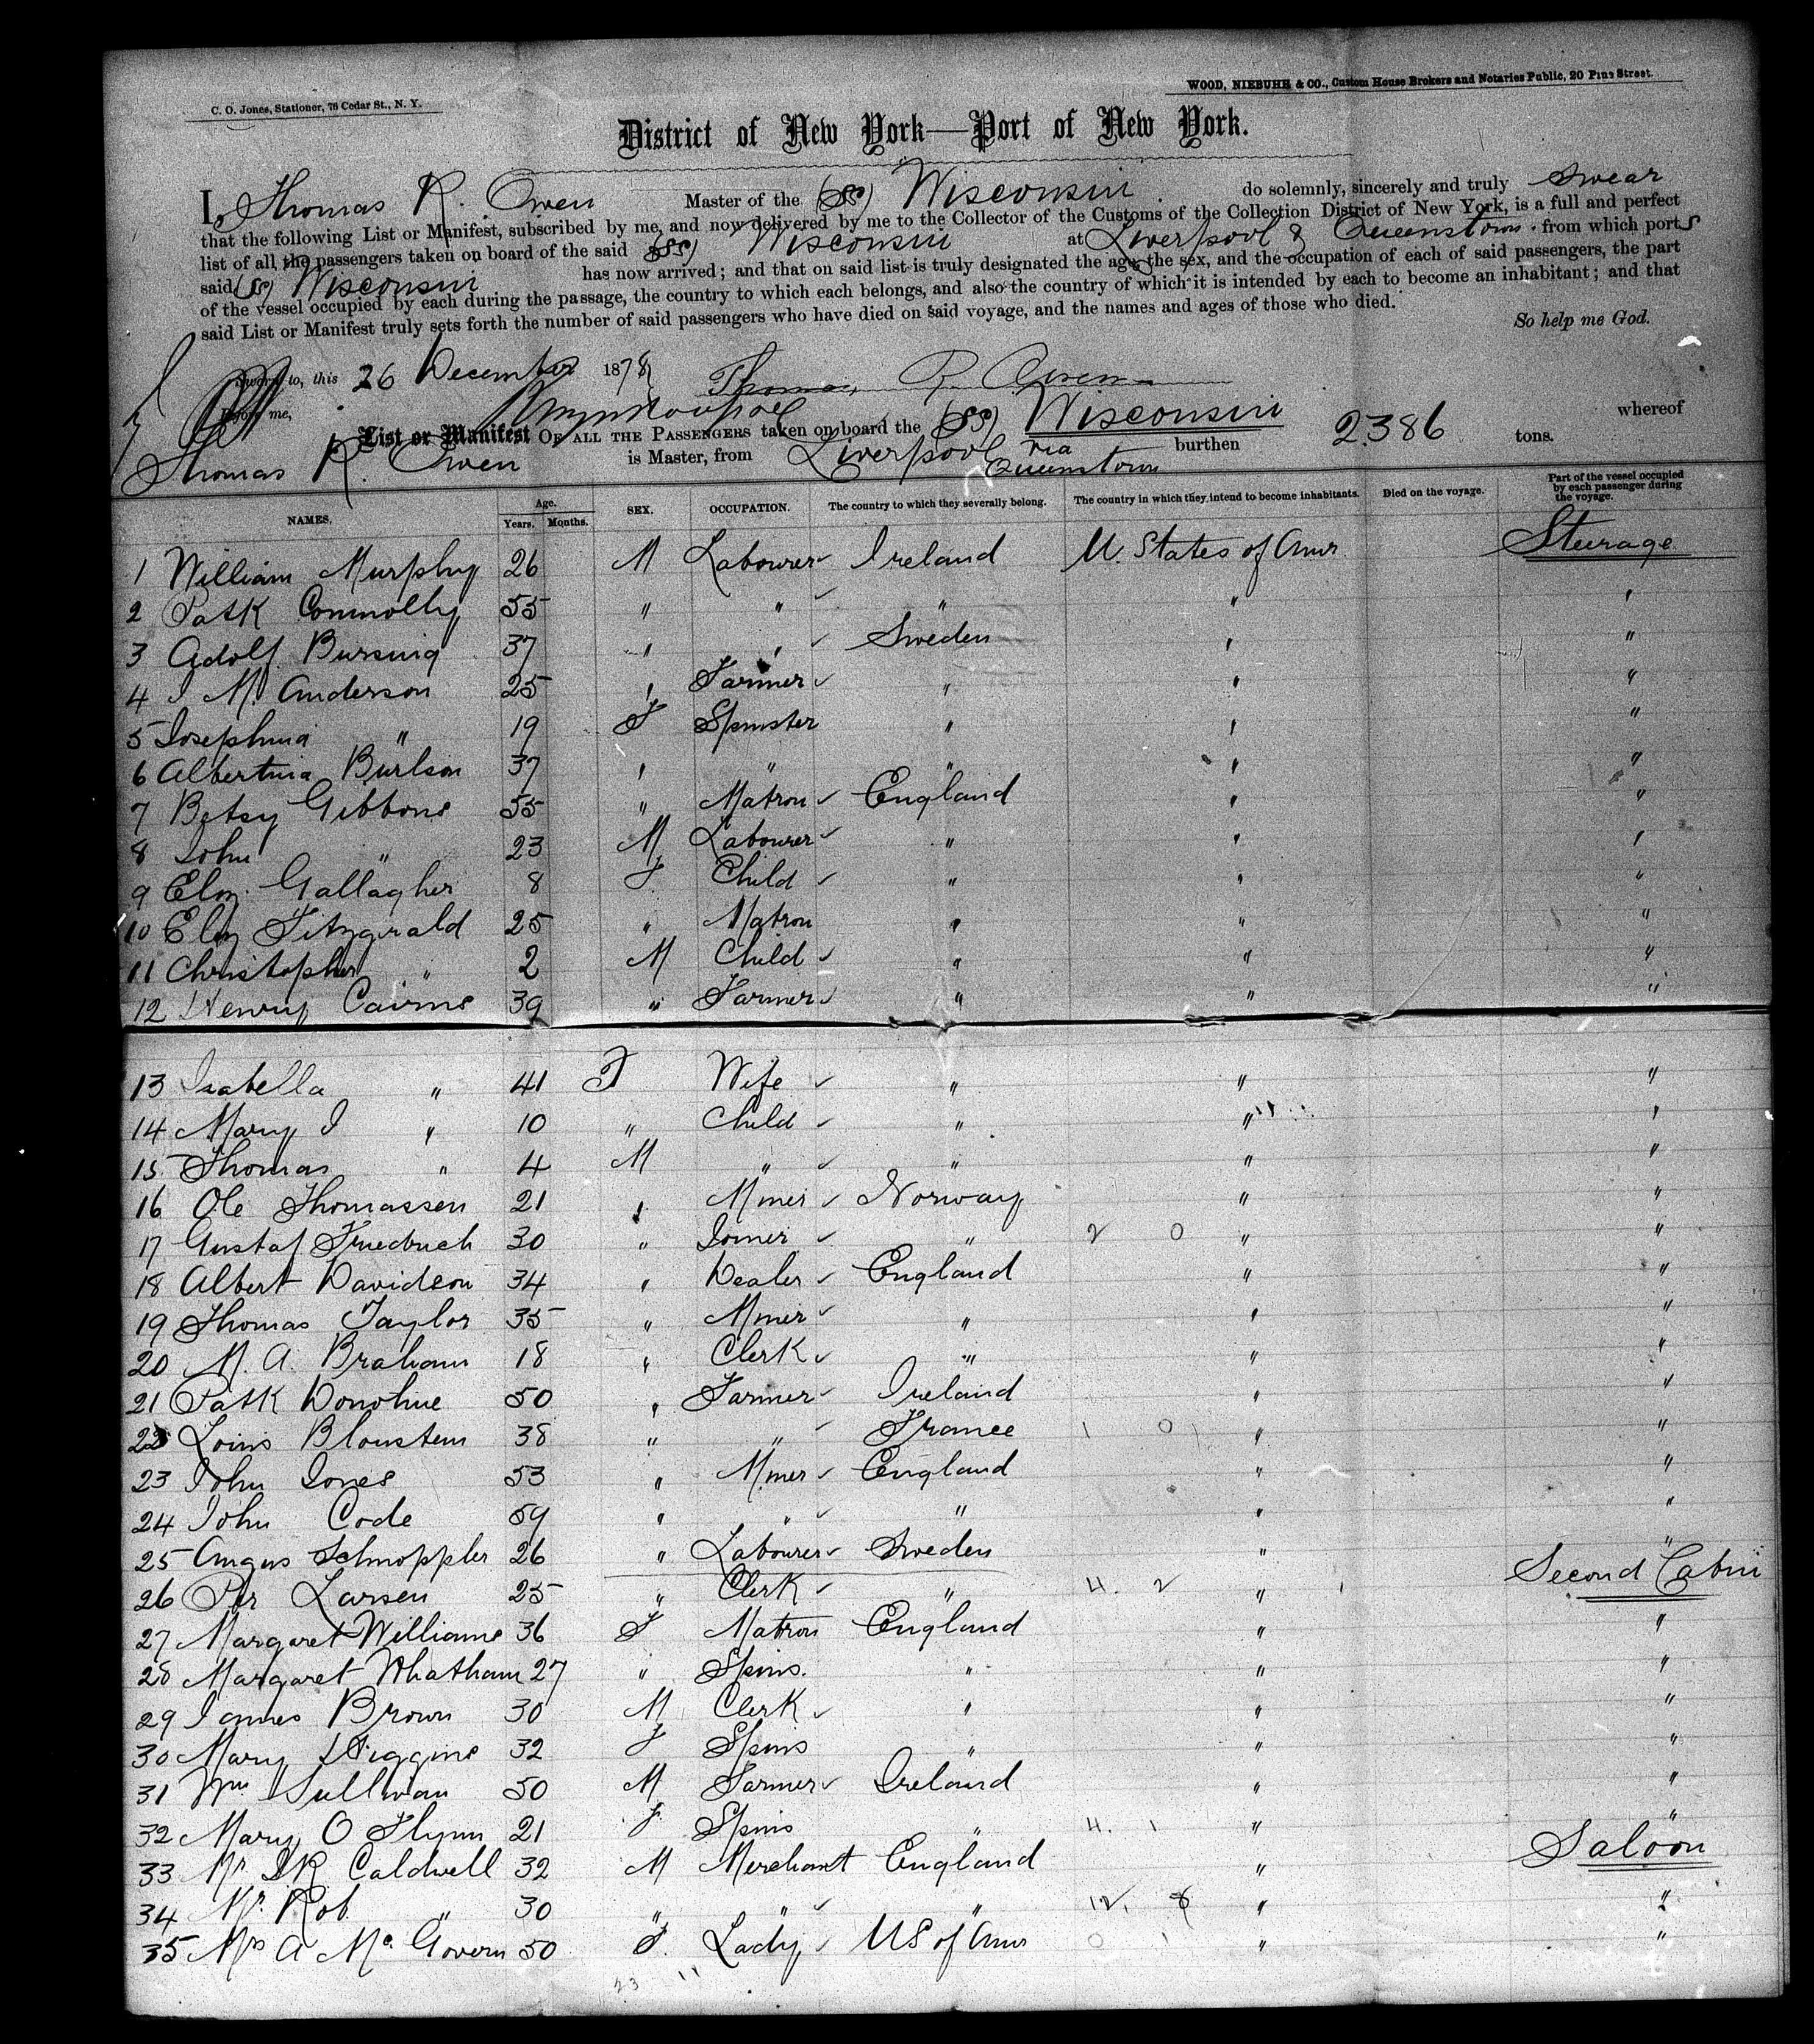 C. O. Jones, Stationer, 76 Cedar St., N. Y.
WOOD, NIEBUHR & CO., Custom House Brokers and Notaries Public, 20 Pine Street.
District of New York—Port of New York.
I, Thomas R. Owen Master of the (SS) Wisconsin do solemnly, sincerely and truly swear
that the following List or Manifest, subscribed by me, and now delivered by me to the Collector of the Customs of the Collection District of New York, is a full and perfect
list of all the passengers taken on board of the said (SS) Wisconsin at Liverpool & Queenstown from which ports
said (SS) Wisconsin has now arrived; and that on said list is truly designated the age, the sex, and the occupation of each of said passengers, the part
of the vessel occupied by each during the passage, the country to which each belongs, and also the country of which it is intended by each to become an inhabitant; and that
said List or Manifest truly sets forth the number of said passengers who have died on said voyage, and the names and ages of those who died.
So help me God.
Sworn to, this 26 December 1878 Thomas R. Owen
Before me,
List or Manifest OF ALL THE PASSENGERS taken on board the (SS) Wisconsin whereof
Thomas R. Owen is Master, from Liverpool via Queenstown burthen 2386 tons.
NAMES. Age. Years. Months. SEX. OCCUPATION. The country to which they severally belong. The country in which they intend to become inhabitants. Died on the voyage. Part of the vessel occupied by each passenger during the voyage.
1 William Murphy 26 M Labourer Ireland U. States of Amr Steerage
2 Patk Connolly 55 " " " " "
3 Adolf Bursing 37 " " Sweden " "
4 I M. Anderson 25 " Farmer " " "
5 Josephina " 19 F Spinster " " "
6 Albertina Burlson 37 " " " " "
7 Betsy Gibbons 55 " Matron England " "
8 John " 23 M Labourer " " "
9 Eliz. Gallagher 8 F Child " " "
10 Eliz Fitzgerald 25 " Matron " " "
11 Christopher " 2 M Child " " "
12 Henry Cairns 39 " Farmer " " "
13 Isabella " 41 F Wife " " "
14 Mary J " 10 " Child " " "
15 Thomas " 4 M " " " "
16 Ole Thomassen 21 " Miner Norway " "
17 Gustaf Friedrich 30 " Joiner " 2 0 " "
18 Albert Davidson 34 " Dealer England " "
19 Thomas Taylor 35 " Miner " " "
20 M. A. Braham 18 " Clerk " " "
21 Patk Donohue 50 " Farmer Ireland " "
22 Louis Bloustein 38 " " France 1 0 " "
23 John Jones 53 " Miner England " "
24 John Code 59 " " " " "
25 Angus Schnoppler 26 " Labourer Sweden " "
26 Per Larsen 25 " Clerk " 4. 2 " Second Cabin
27 Margaret Williams 36 F Matron England " "
28 Margaret Whatham 27 " Spins. " " "
29 James Brown 30 M Clerk " " "
30 Mary Higgins 32 F Spins " " "
31 Wm Sullivan 50 M Farmer Ireland " "
32 Mary O Flynn 21 F Spins " 4. 1 " "
33 Mr. J R Caldwell 32 M Merchant England " Saloon
34 Mr. Rob. " 30 " " " 12. 8 " "
35 Mrs A Mc. Govern 50 F. Lady US of Amr 0 1 " "
23 11